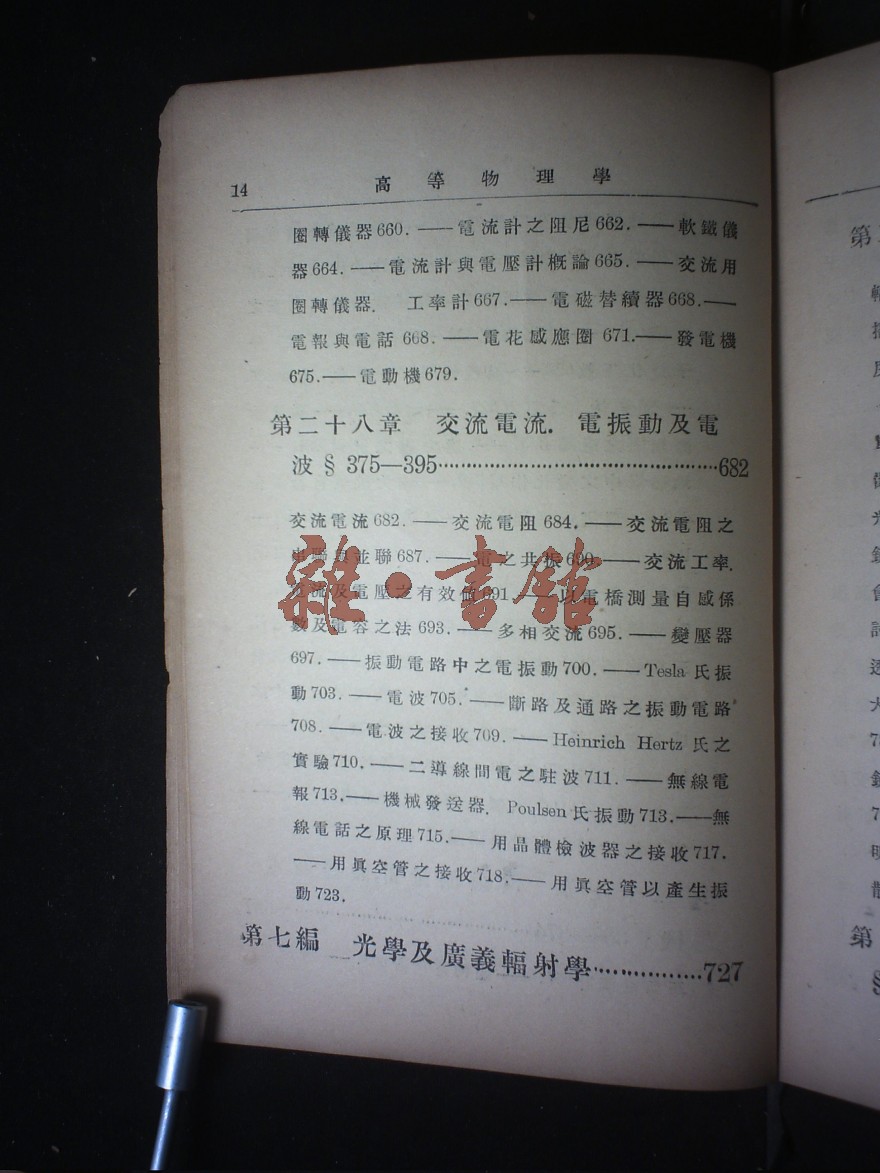 14 高等物理學
圈轉儀器660.——電流計之阻尼662.——軟鐵儀
器664.——電流計與電壓計概論665.——交流用
圈轉儀器. 工率計667.——電磁替續器668.——
電報與電話 668.——電花感應圈 671.——發電機
675.——電動機679.
第二十八章 交流電流. 電振動及電
波 § 375—395·················682
交流電流682.——交流電阻684.——交流電阻之
聯與並聯687.——電之共振690——交流工率.
流及電壓之有效值691 以電橋測量自感係
數及電容之法 693.——多相交流695.——變壓器
697.——振動電路中之電振動700.——Tesla 氏振
動703.——電波705.——斷路及通路之振動電路
708.——電波之接收709.——Heinrich Hertz 氏之
實驗710.——二導線間電之駐波711.——無線電
報713.——機械發送器. Poulsen 氏振動713.——無
線電話之原理715.——用晶體檢波器之接收717.
——用眞空管之接收718.——用眞空管以產生振
動723.
第七編 光學及廣義輻射學··············727
雜·書館
第
第
§